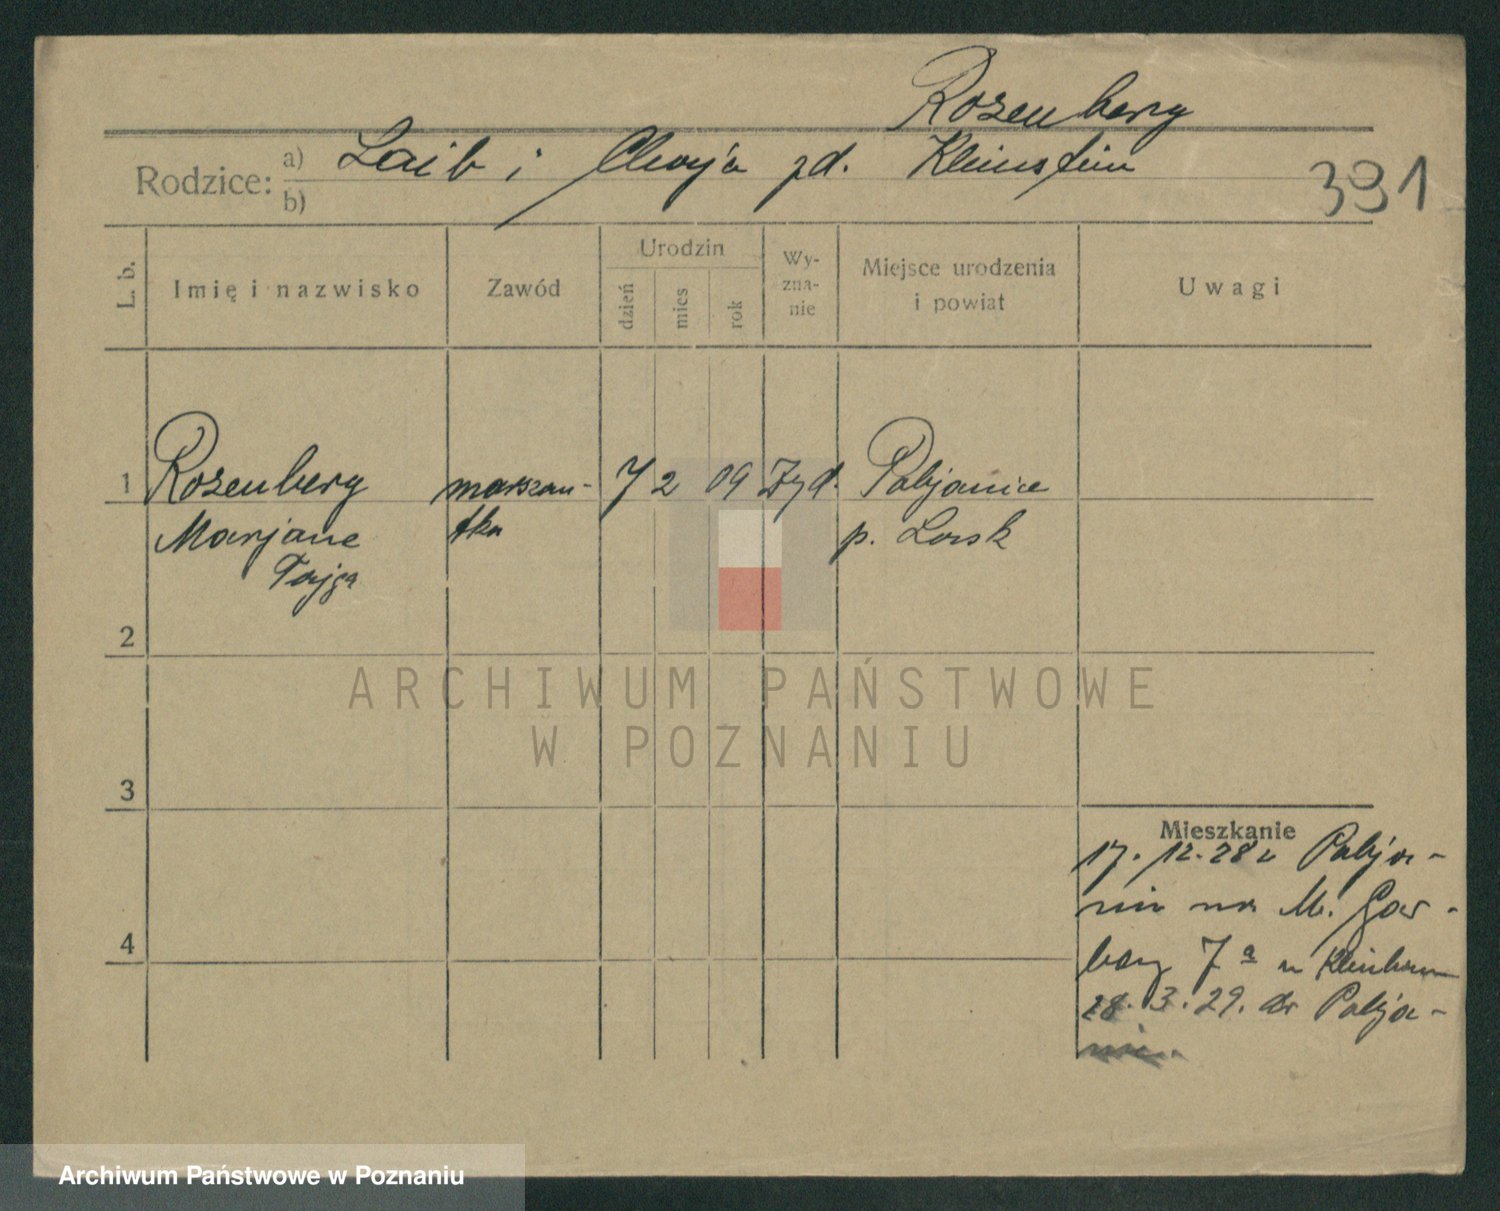 Rosenberg
Rodzice: a) Laib i Chaja zd. Kleinstein
b)
391
L. b.
Imię i nazwisko
Zawód
Urodzin
dzień
mies
rok
Wy-
zna-
nie
Miejsce urodzenia
i powiat
Uwagi
1 Rosenberg marszan- 7 2 09 Żyd. Pabjanice
Marjane tka p. Łask
Fajga
2
3
4
Mieszkanie
17. 12. 28 z Pabja-
nic na M. Gar-
bary 7a u
28. 3. 29. do Pabja-
nic.
ARCHIWUM PAŃSTWOWE
W POZNANIU
Archiwum Państwowe w Poznaniu